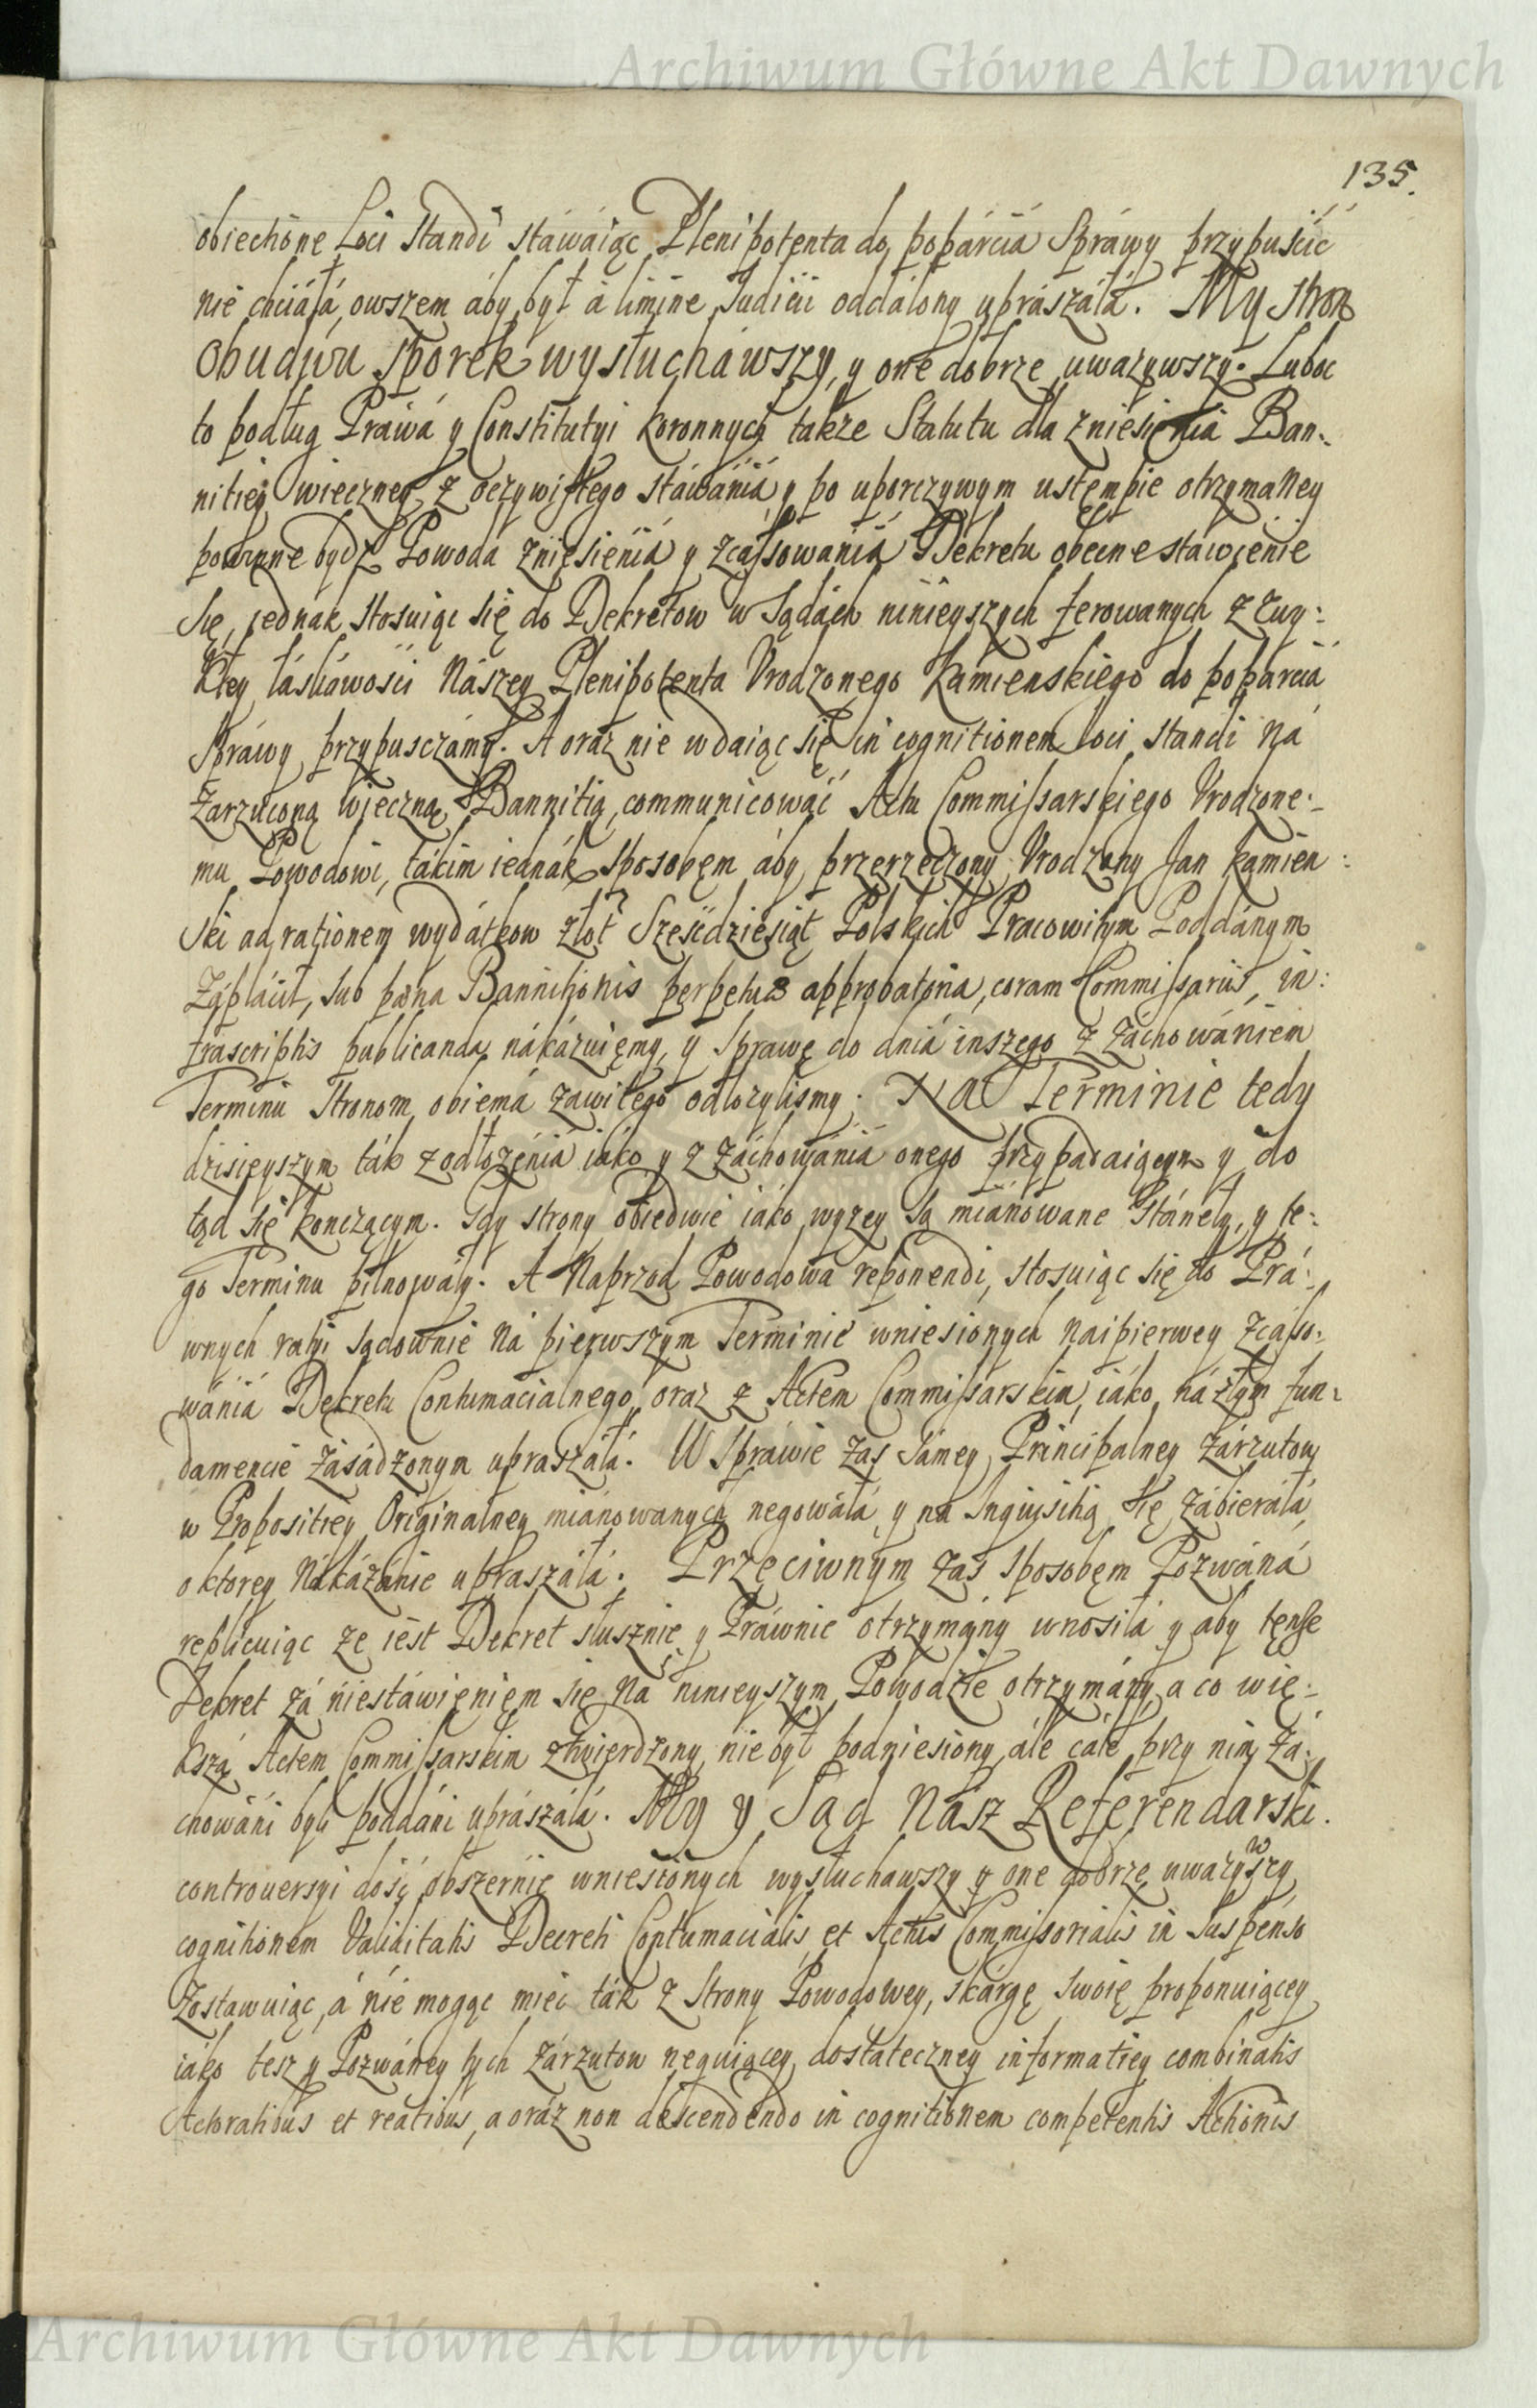 Archiwum Główne Akt Dawnych
135.
obiechone Loci standi stawaiąc Plenipotenta do poparcia Sprawy przypuścić
nie chciáłá, owszem áby był à limine Judicii oddálony upraszáłá. My stron
obudwu sporek wysłuchawszy, y one dobrze uwazywszy. Luboc
to podług Práwá y Constitutyi koronnych takze Statutu dla zniesięnia Ban:
nitiey wieczney z oczywistego stáwániá y po uporczywym ustęmpie otrzymáney
powinne bydz Powoda zniesieniá y zcassowaniá Dekretu obecne stáwienie
się, jednák stosuiąc się do Dekretow w Sądách ninieyszych ferowanych z zwy:
kłey łáskáwości Nászey Plenipotenta Urodzonego Kámienskiego do popárciá
Spráwy przypusczámy. A oraz nie wdaiąc się in cognitionem loci standi ná
zárzuconą wieczną Bannitią, communicowáć Actu Commissarskiego Urodzone:
mu Powodowi, tákim iednák sposobęm áby przerzeczony Urodzony Jan Kamien:
ski ad rationem wydátkow złot Sześćdziesiąt Polskich Pracowitym Poddánym
Zápłácił, sub pœna Bannitionis perpetuæ approbatoria, coram Commissariis in:
frascriptis publicanda nákázuięmy, y Sprawę do dniá inszego z záchowániem
Terminu Stronom obiemá záwitego odłozylismy. Na Terminie tedy
dzisięyszym ták z odłozęniá iáko y z záchowániá onego przypadaiącym y do
tąd się konczącym. Gdy strony obiedwie iáko wyzey są miánowane stánęły, y te:
go Terminu pilnowáły. A Naprzod Powodowa reponendi, stosuiąc się do Prá:
wnych ratyi sądownie ná pierwszym Terminie wniesionych naipierwey zcásso:
wániá Dekretu Contumacialnego oraz z Actem Commissarskim, iáko ná złym fun:
damencie zásádzonym upraszáłá. W Sprawie zas sámey Principalney zárzutow
w Propositiey Originalney miánowanych negowáłá, y na Inquisitią się zábieráłá,
o ktorey Nákázánie upraszáłá. Przeciwnym zas sposobęm Pozwáná
replicuiąc ze iest Dekret słusznie y Práwnie otrzymány wnosiłá y aby tęnze
Dekret zá niestáwięnięm się ná ninieyszym Powodzie otrzymány, a co wię:
kszá Actem Commissarskim ztwierdzony nie był podniesiony, ále cáłe przy nim zá:
chowáni byli poddáni uprászáłá. My y Sąd Nász Referendarski.
controversyi dość obszernie wniesionych wysłuchawszy y one dobrze uwazywszy,
cognitionem Validitatis Decreti Contumacialis et Actus Commissorialis in suspenso
Zostawuiąc, á nie mogąc mieć ták z strony Powodowey, skárgę swoię proponuiącey
iáko tesz y Pozwáney tych zárzutow neguiącey dostateczney informatiey combinatis
Actoratibus et reatibus, a oráz non descendendo in cognitionem competentis Actionis
Archiwum Główne Akt Dawnych